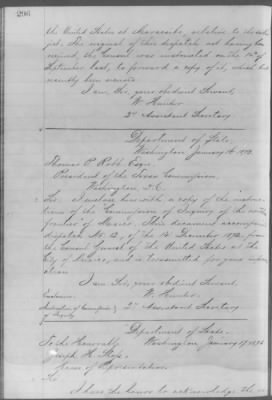 296
the United States at Maracaibo, relative to the sub-
ject. The original of this dispatch not having been
received, the Consul was instructed on the of
last, to forward a copy of it, which has
recently been received.
I am, Sir, your obedient Servant,
W. Hunter
2d Assistant Secretary.
Department of State,
Washington, January 1873.
Thomas P. Robb Esqre
President of the Texas Commission,
Washington, D.C.
Sir: I enclose herewith a copy of the instruc-
tions of the Commission of Inquiry of the
frontier of Mexico. This document accompanied
dispatch No. 12, of the December 1872, from
the Consul General of the United States at the
City of Mexico, and is transmitted for your inform-
ation.
I am Sir, your obedient Servant,
Enclosure: W. Hunter
Instructions of Commission 2d Assistant Secretary
of Inquiry
Department of State,
To the Honorable Washington, January 1873
Joseph H.
House of Representatives.
Sir:
I have the honor to acknowledge the